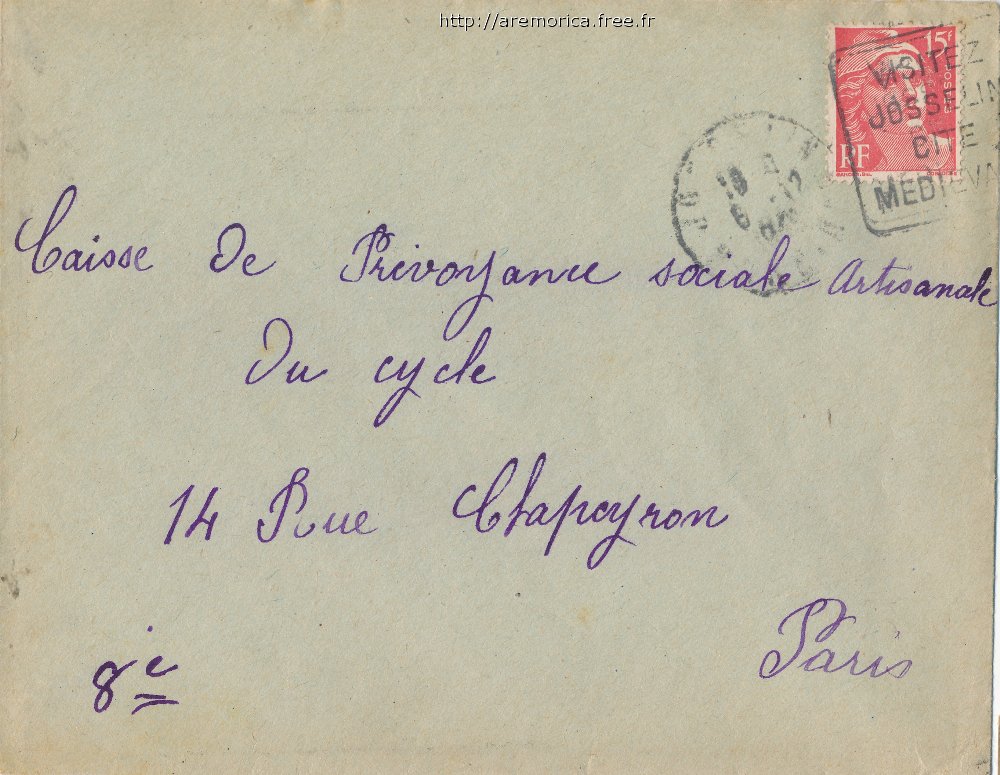 http://aremorica.free.fr
15F
POSTES
RF
VISITEZ
JOSSELIN
CITE
MEDIEVA
Caisse de Prévoyance sociale Artisanale
Du cycle
14 Rue Clapeyron
8e
Paris